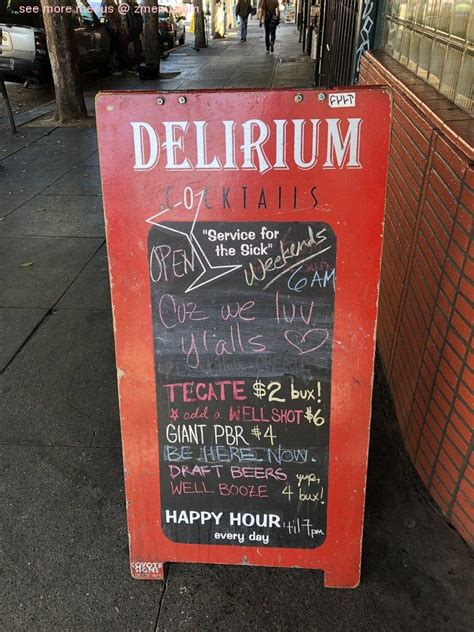 see more menus @ zmenu.com
CULT
DELIRIUM
COCKTAILS
"Service for
the Sick"
OPEN Weekends
6 AM
Coz we luv
y'alls
TECATE $2 bux!
add a WELL SHOT $6
GIANT PBR $4
BE HERE NOW.
DRAFT BEERS yup,
WELL BOOZE 4 bux!
HAPPY HOUR 'til 7pm
every day
COYOTE
SIGNS